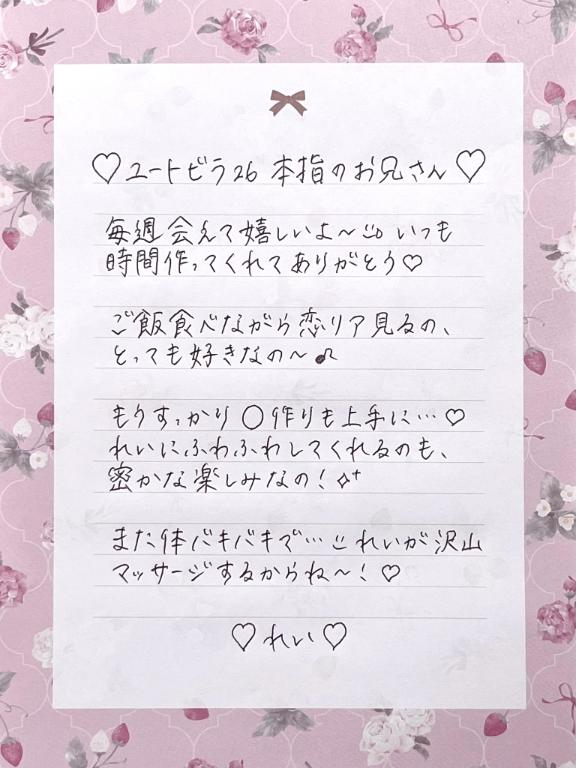 ♡ユートピラ26 本指のお兄さん♡
毎週会えて嬉しいよ〜 いつも
時間作ってくれてありがとう♡
ご飯食べながら恋リア見るの、
とっても好きなの〜♪
もうすっかり◯作りも上手に…♡
れいにふわふわしてくれるのも、
密かな楽しみなの！✧⁺
また体バキバキで… れいが沢山
マッサージするからね〜！♡
♡れい♡